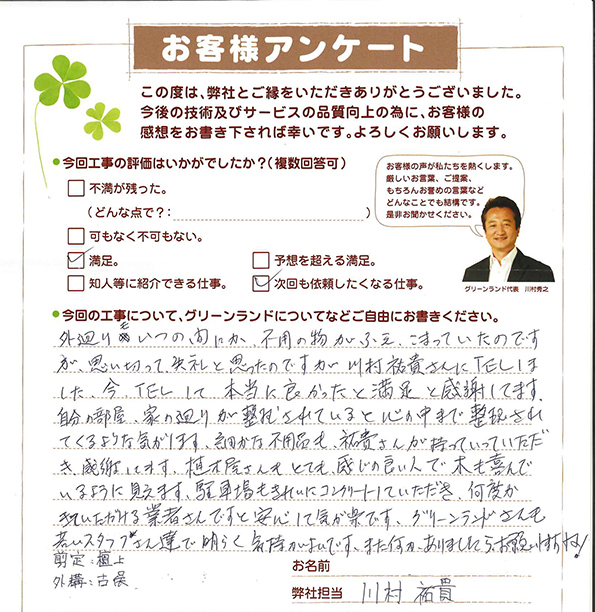 お客様アンケート
この度は、弊社とご縁をいただきありがとうございました。
今後の技術及びサービスの品質向上の為に、お客様の
感想をお書き下されば幸いです。よろしくお願いします。
今回工事の評価はいかがでしたか?(複数回答可)
不満が残った。
(どんな点で?: )
可もなく不可もない。
満足。
予想を超える満足。
知人等に紹介できる仕事。
次回も依頼したくなる仕事。
お客様の声が私たちを熱くします。
厳しいお言葉、ご提案、
もちろんお誉めの言葉など
どんなことでも結構です。
是非お聞かせください。
グリーンランド代表 川村秀之
今回の工事について、グリーンランドについてなどご自由にお書きください。
外廻り も いつの間にか、不用の物がふえ、こまっていたのです
が、思い切って、失礼と思ったのですが川村祐貴さんにTELしま
した、今、TELして 本当に良かったと満足と感謝してます、
自分の部屋、家の廻りが整理されていると心の中まで整理され
てくるような気がします、細かな不用品も、祐貴さんが持っていっていただ
き、感謝してます、植木屋さんもとても、感じの良い人で木も喜んで
いるように見えます、駐車場もきれいにコンクリートしていただき、何度か
いただける業者さんですと安心して気が楽です、グリーンランドさんも
若いスタッフさん達で明るく気持がよいです、また何かありましたら、お願いしますね!
剪定:植上
外構:古俣
お名前
弊社担当 川村 祐貴